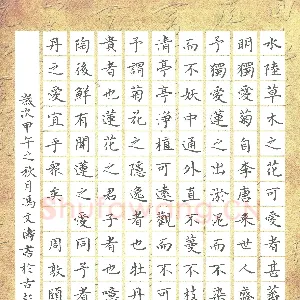 水陸草木之花可愛者甚蕃
明獨愛菊自李唐來世人
予獨愛蓮之出淤泥而不染
而不妖中通外直不蔓不枝
清亭亭淨植可遠觀而不可
予謂菊花之隱逸者也牡丹
貴者也蓮花之君子者也噫
陶後鮮有聞蓮之愛同予者
丹之愛宜乎眾矣 周敦頤
歲次甲午之秋月馮文濤書於古